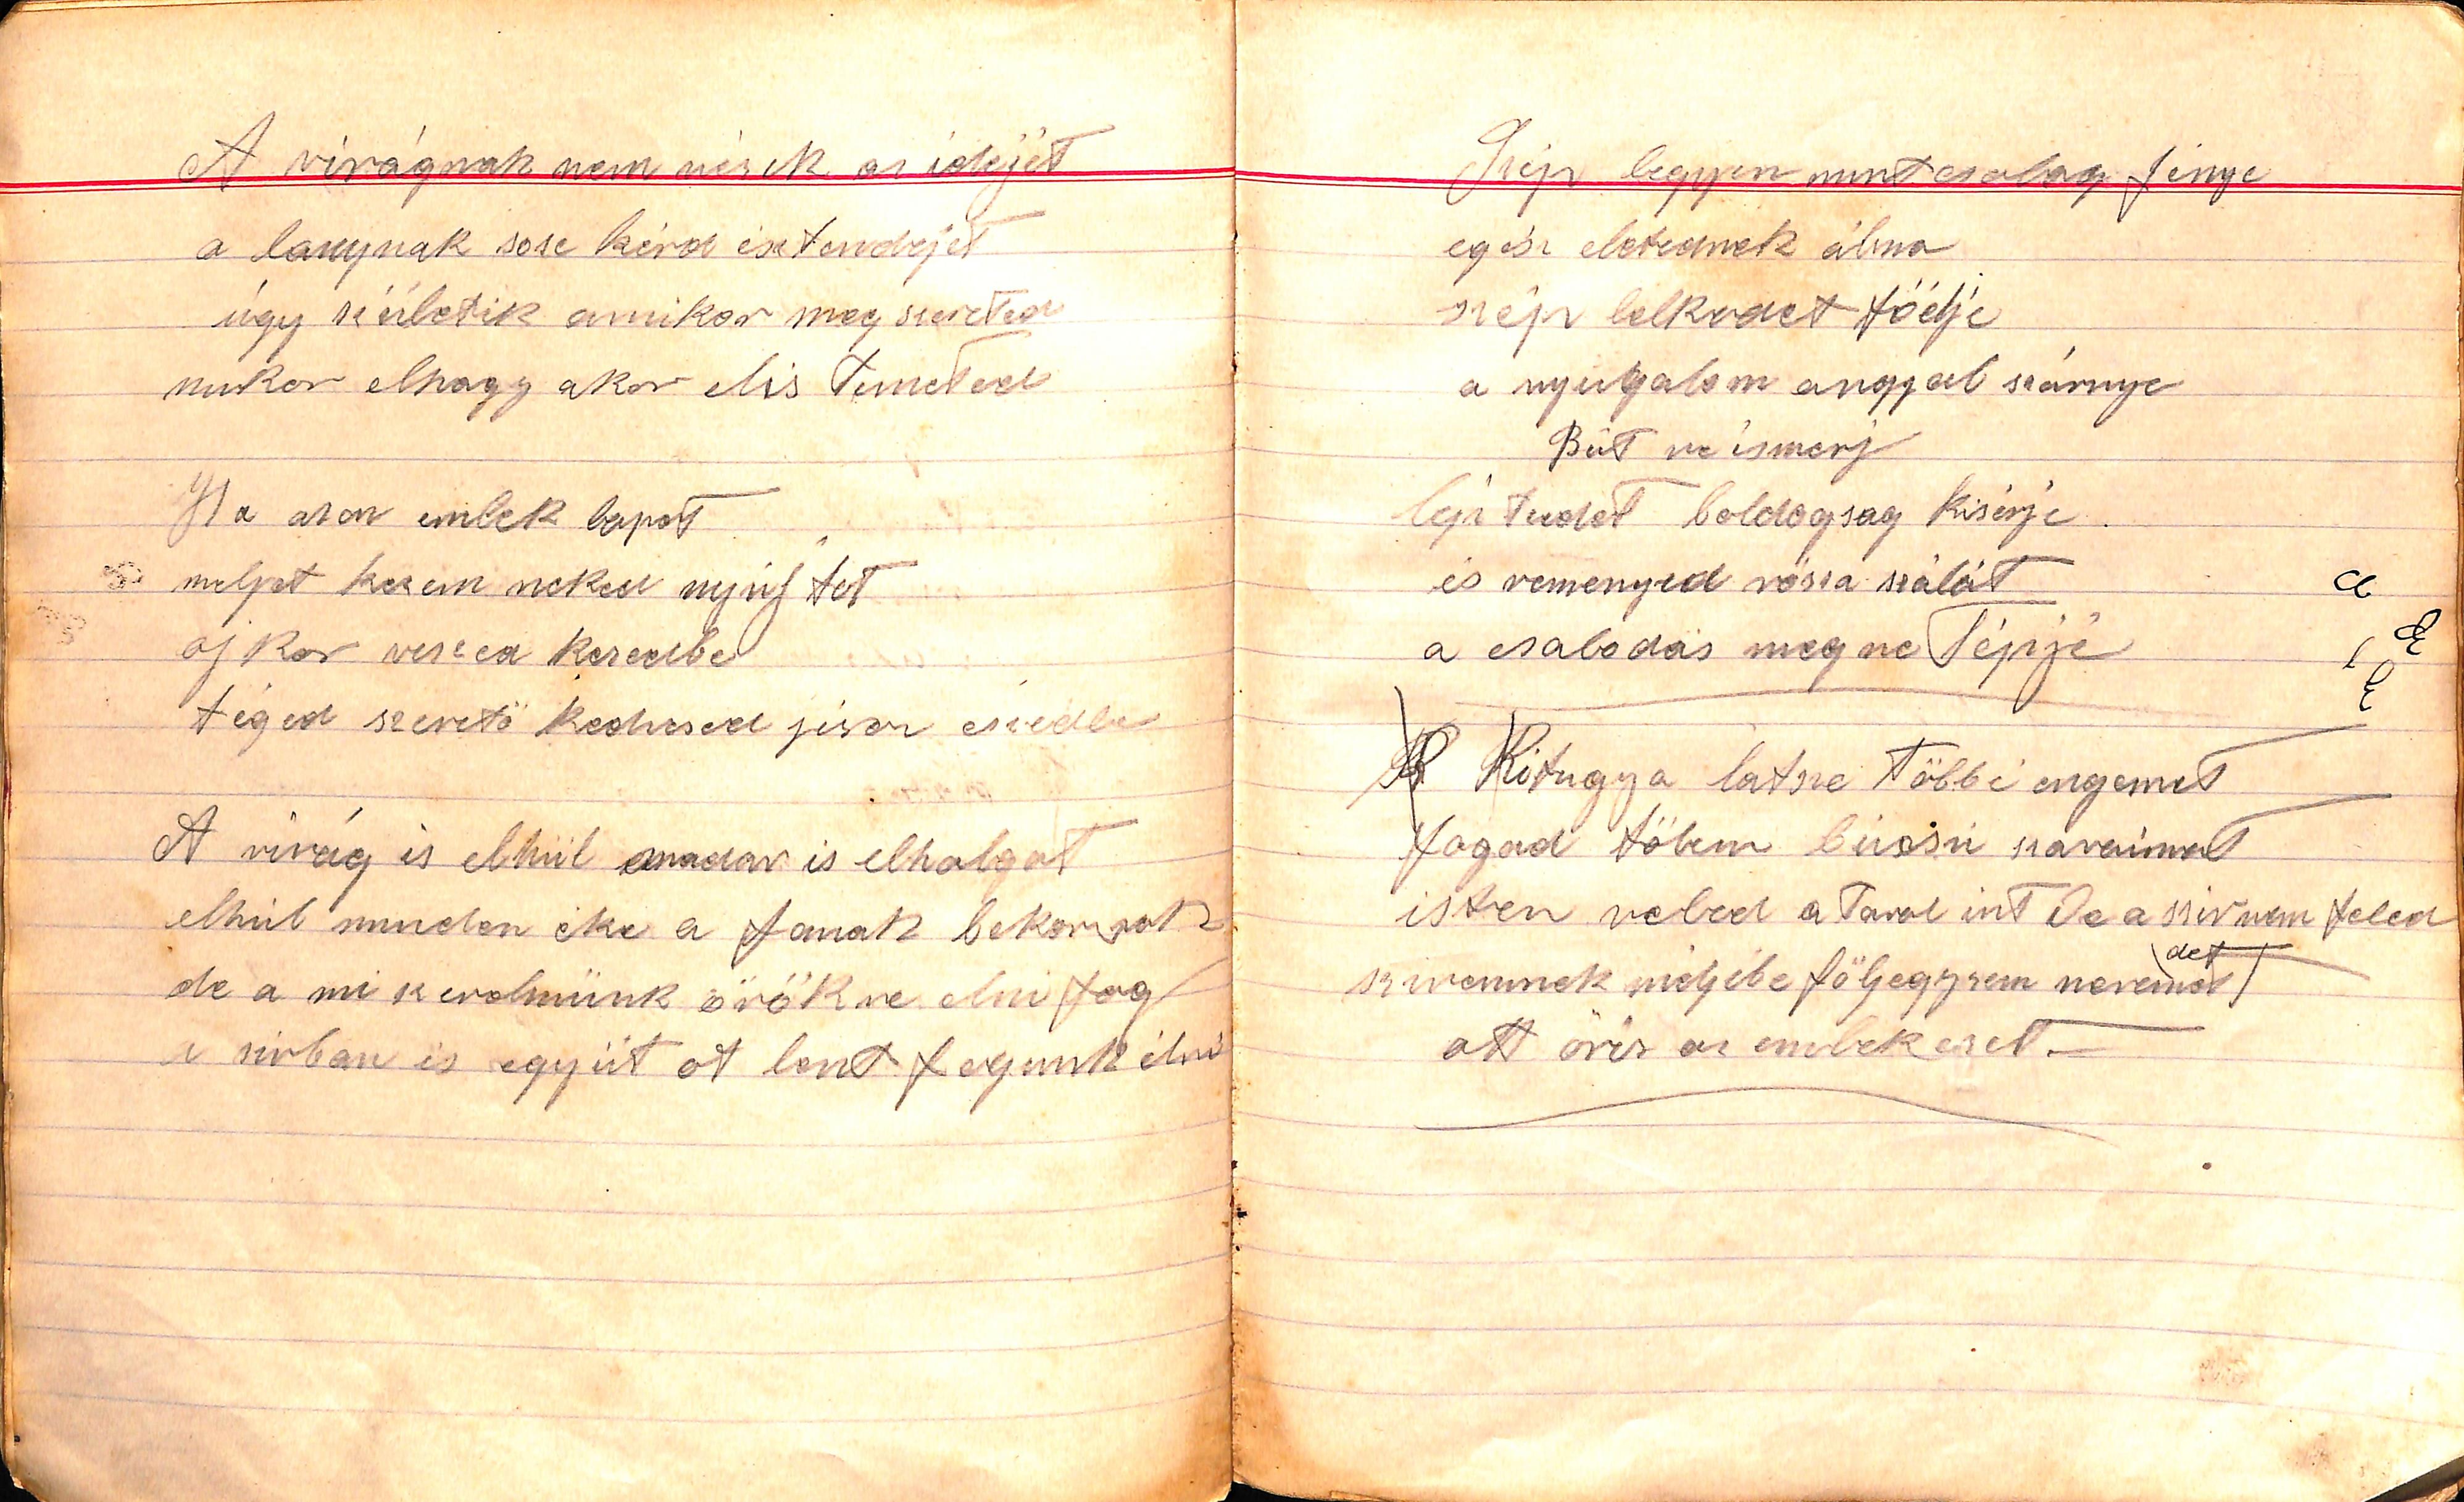 A virágnak nem nézik az idejét
a lanynak sose kérd esztendejét
úgy születik amikor meg szereted
mikor elhagy akor elis temeted
Ha azon emlek lapot
melyet kezem neked nyújtot
oj kor veszed kezedbe
téged szerető kedvesed juson eszedbe
A virág is elhúl amadar is elhalgat
elhúl minden éke a fanak bokornak
de a mi szerelmünk örökre elni fog
a sirban is együt ot lent fogunk élni
Szép legyen mint csilag fénye
egész eletednek álma
szép lelkedet födje
a nyugalom angyal szárnye
Bút ne ismerj
léptedet boldogsag kisérje
és remenyed rózsa szálát
a csalodás meg ne Tépjé
Kitugya latsze többé engemet
fogad tölem búcsú szavaimat
isten veled a Tavol int De a sziv nem feled
szivemnek méjébe följegyzem nevemet
det
ott őriz az emlekezet